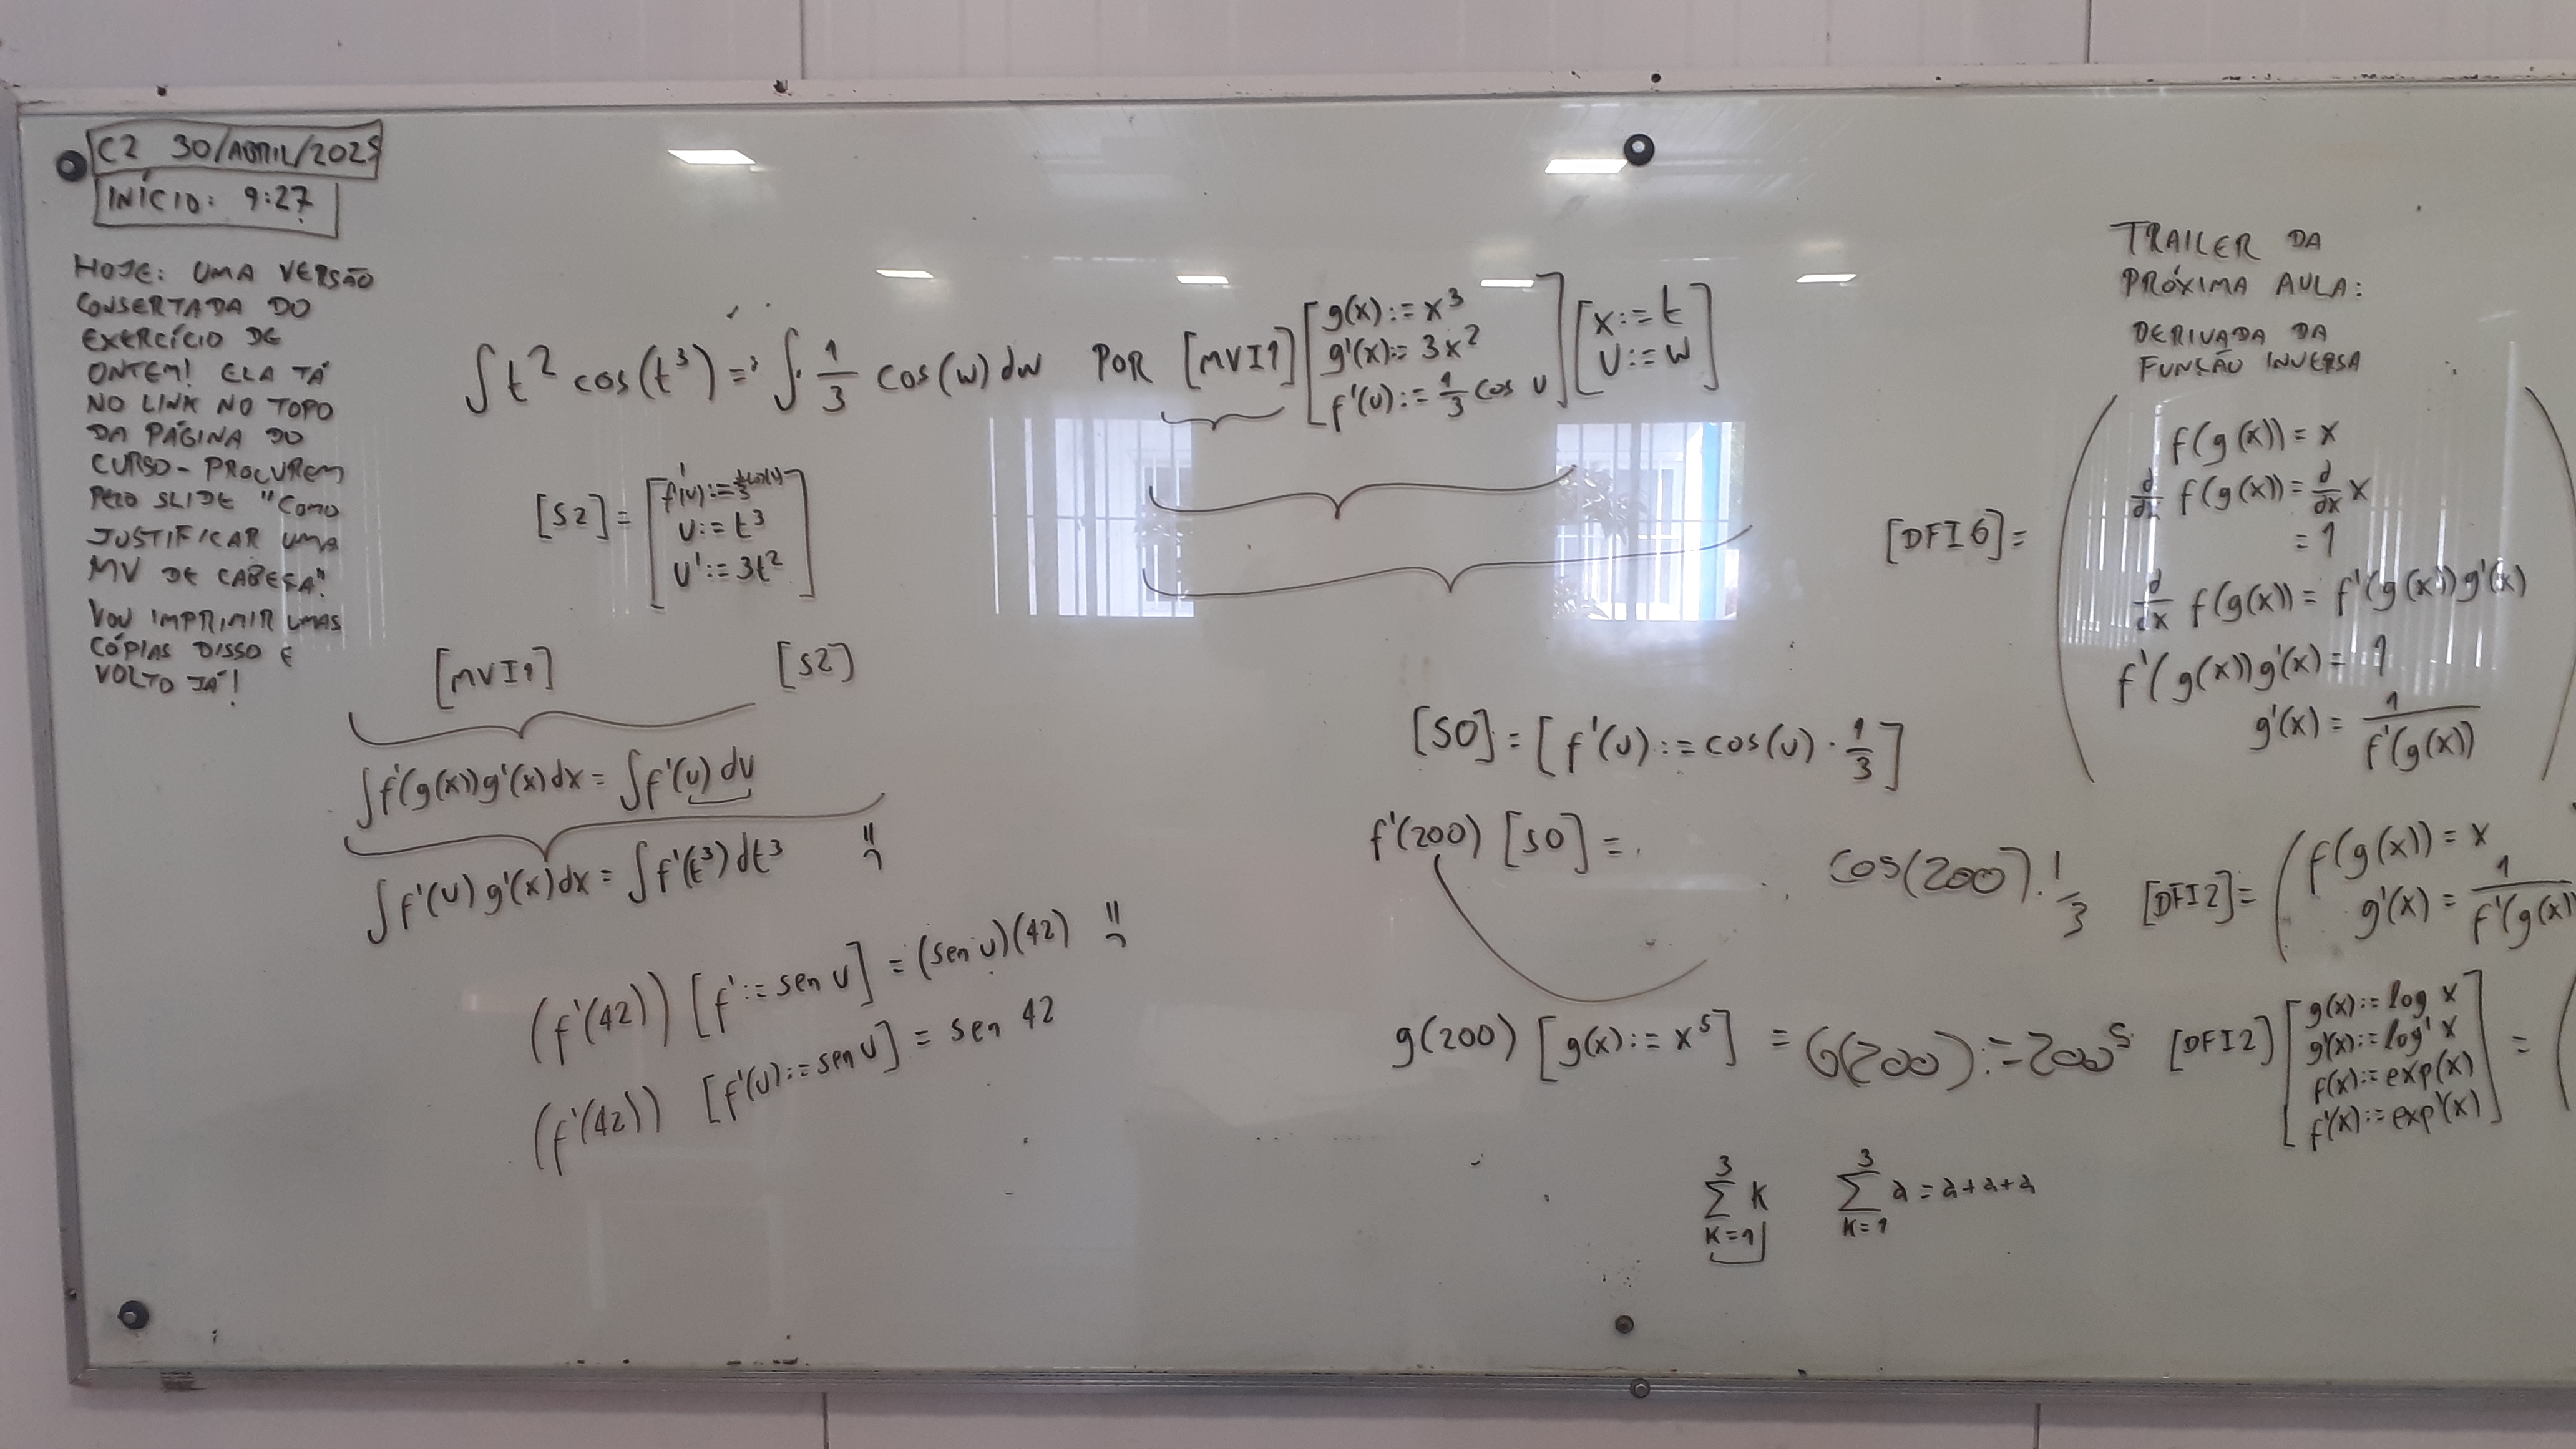 C2 30/ABRIL/2025
INÍCIO: 9:27
HOJE: UMA VERSÃO
CONSERTADA DO
EXERCÍCIO DE
ONTEM! ELA TÁ
NO LINK NO TOPO
DA PÁGINA DO
CURSO - PROCUREM
PELO SLIDE "COMO
JUSTIFICAR UMA
MV DE CABEÇA".
VOU IMPRIMIR UMAS
CÓPIAS DISSO E
VOLTO JÁ!
∫ t² cos(t³) = ∫ 1/3 cos(w) dw POR [MVI1] [g(x) := x³
g'(x) := 3x²
f'(u) := 1/3 cos u] [x := t
u := w]
[S2] = [f'(u) := 1/3 cos(u)
u := t³
u' := 3t²]
[MVI1] [S2]
∫ f'(g(x)) g'(x) dx = ∫ f'(u) du
∫ f'(u) g'(x) dx = ∫ f'(t³) dt³
(f'(42)) [f' := sen u] = (sen u)(42)
(f'(42)) [f'(u) := sen u] = sen 42
[S0] = [f'(u) := cos(u) · 1/3]
f'(200) [S0] = cos(200) · 1/3
g(200) [g(x) := x⁵] = G(200) := 200⁵
3 ∑ K=1 K
3 ∑ K=1 a = a+a+a
TRAILER DA
PRÓXIMA AULA:
DERIVADA DA
FUNÇÃO INVERSA
[DFI6] = (f(g(x)) = x
d/dx f(g(x)) = d/dx x
= 1
d/dx f(g(x)) = f'(g(x)) g'(x)
f'(g(x)) g'(x) = 1
g'(x) = 1/f'(g(x)))
[DFI2] = (f(g(x)) = x
g'(x) = 1/f'(g(x))
[DFI2] [g(x) := log x
g'(x) := log' x
f(x) := exp(x)
f'(x) := exp'(x)] = (